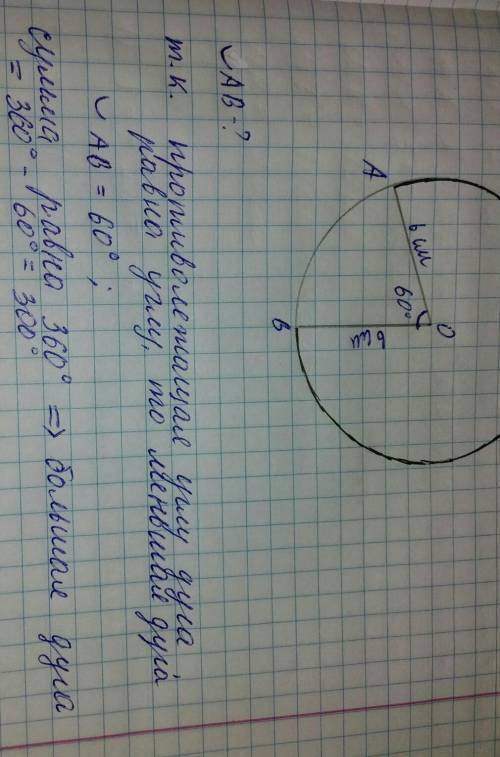 A
B
O
6 см
60°
6 см
◡ AB - ?
т.к. противолежащая углу дуга
равна углу, то меньшая дуга
◡ AB = 60°;
сумма равна 360° => большая дуга
= 360° - 60° = 300°